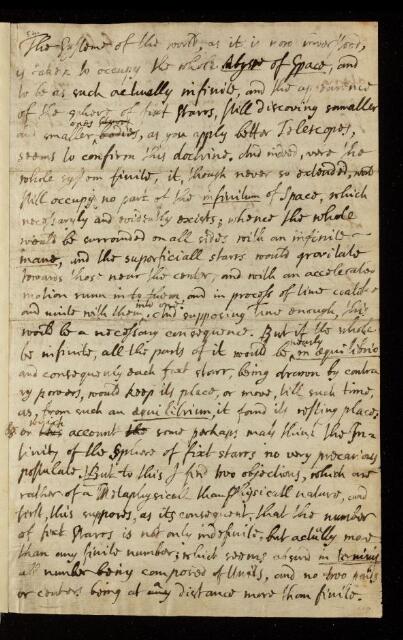 The Systeme of the world, as it is now understood,
is taken to occupy the whole abysse of Space, and
to be as such actually infinite, and the appearence
of the sphere of fixt Starrs, still discovering smaller
and smaller ones as you apply better Telescopes,
seems to confirm this doctrine. And indeed, were the
whole system finite, it, though never so extended, would
still occupy no part of the infinitum of Space, which
necessaryly and evidently exists; whence the whole
would be surrounded on all sides with an infinite
inane, and the superficiall starrs would gravitate
towards those near the center, and with an accelerated
motion runn into them, and in process of time coalesce
and unite with them into one. And supposing time enough, this
would be a necessary consequence. But if the whole
be infinite, all the parts of it would be nearly in æquilibrio
and consequently each fixt starr, being drawn by contra-
ry powers, would keep its place, or move, till such time,
as, from such an æquilibrium, it found its resting place;
on which account some perhaps may think the In-
finity of the Sphere of fixt starrs no very precarious
postulate. But to this I find two objections, which are
rather of a Metaphysicall than Physicall nature, and
first, this supposes, as its consequent, that the number
of fixt Starrs is not only indefinite, but actually more
than any finite number; which seems absurd in terminis
all number being composed of Units, and no two points
or centers being at any distance more than finite.